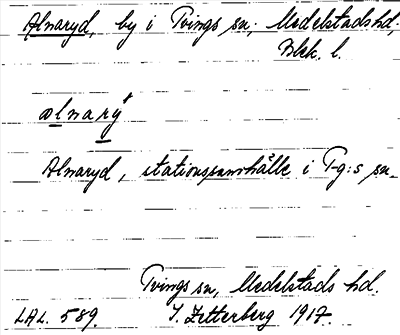 Alnaryd, by i Tvings sn, Medelstads hd,
Blek. l.
alnarý
Alnaryd, stationssamhälle i T-g:s sn.
Tvings sn, Medelstads hd.
LAL. 589. J. Zetterberg 1917.